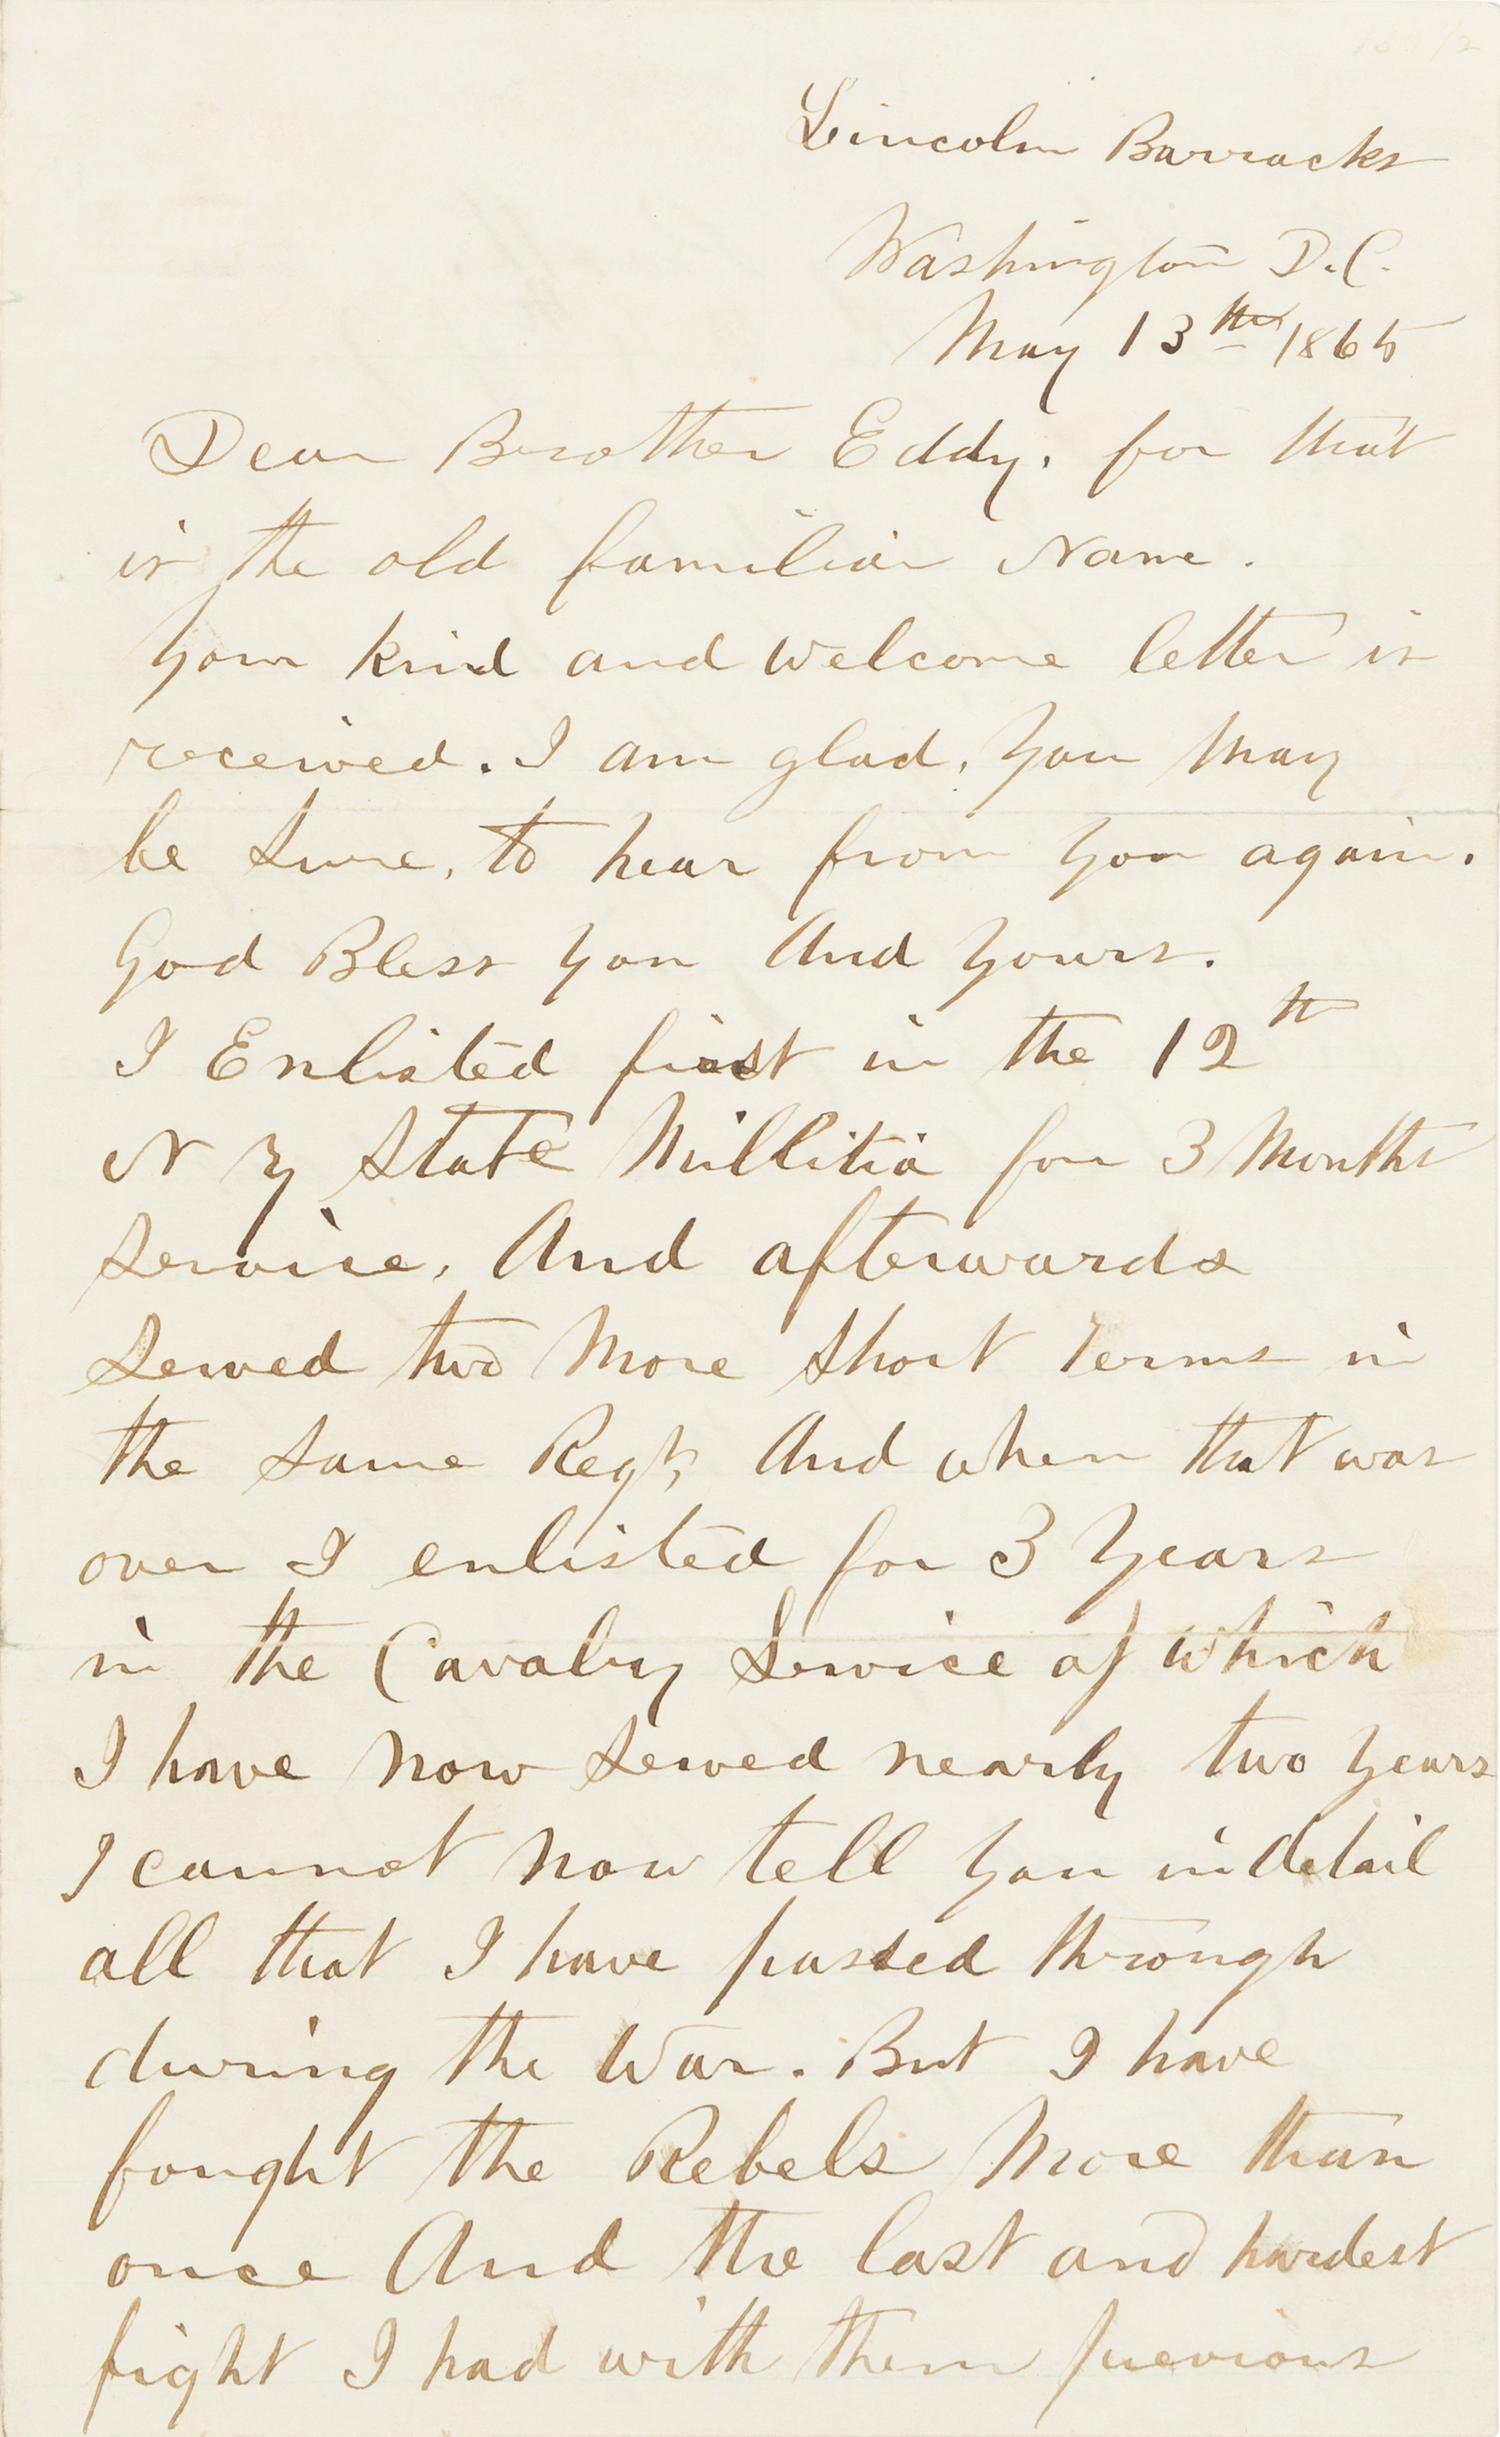 Lincoln Barracks
Washington D.C.
May 13th 1865
Dear Brother Eddy. for that
is the old familiar Name.
Your kind and welcome letter is
received. I am glad, you May
be Sure, to hear from you again.
God Bless you And Yours.
I Enlisted first in the 12th
N Y State Millitia for 3 Months
Service, And afterwards
Served two More Short Terms in
the Same Regt, And when that was
over I enlisted for 3 Years
in the Cavalry Service of Which
I have Now Served nearly two years
I cannot Now tell you in detail
all that I have passed through
during the War. But I have
fought the Rebels More than
once And the last and hardest
fight I had with them previous